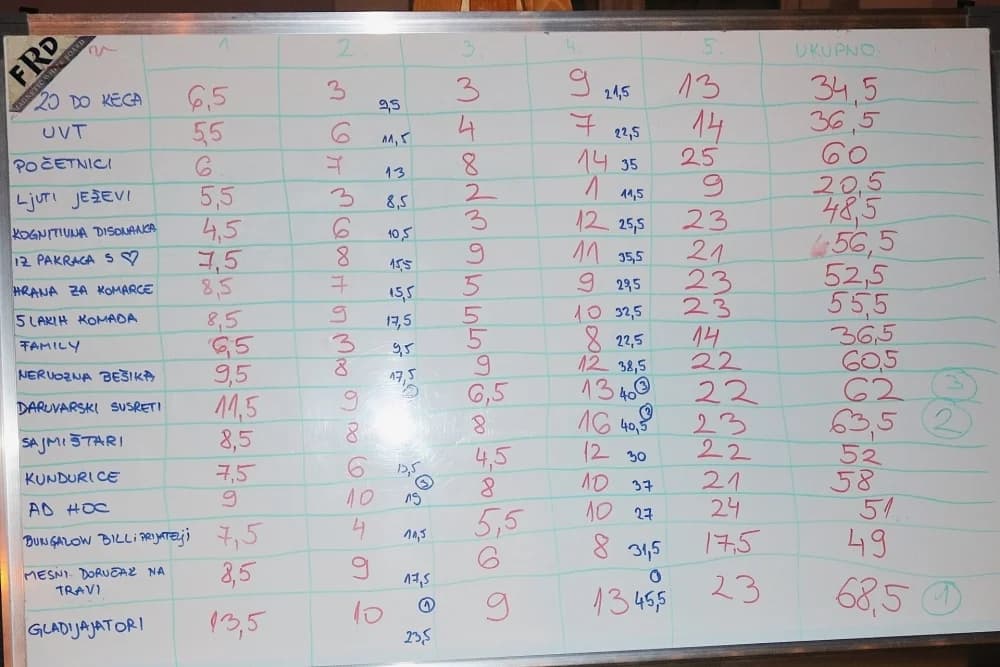 FRD
MAGNETIC WHITEBOARD
1 2. 3. 4. 5. UKUPNO:
20 DO KECA 6,5 3 9,5 3 9 21,5 13 34,5
UVT 5,5 6 11,5 4 7 22,5 14 36,5
POČETNICI 6 7 13 8 14 35 25 60
LJUTI JEŽEVI 5,5 3 8,5 2 1 11,5 9 20,5
KOGNITIVNA DISONANCA 4,5 6 10,5 3 12 25,5 23 48,5
IZ PAKRACA S ♡ 7,5 8 15,5 9 11 35,5 21 56,5
HRANA ZA KOMARCE 8,5 7 15,5 5 9 29,5 23 52,5
5 LAKIH KOMADA 8,5 9 17,5 5 10 32,5 23 55,5
FAMILY 6,5 3 9,5 5 8 22,5 14 36,5
NERVOZNA BEŠIKA 9,5 8 17,5 9 12 38,5 22 60,5
DARUVARSKI SUSRETI 11,5 9 6,5 13 40 3 22 62 3
SAJMIŠTARI 8,5 8 8 16 40,5 2 23 63,5 2
KUNDURICE 7,5 6 13,5 4,5 12 30 22 52
AD HOC 9 10 19 3 8 10 37 21 58
BUNGALOW BILL i PRIJATELJI 7,5 4 11,5 5,5 10 27 24 51
MESNI DORUČAK NA 8,5 9 17,5 6 8 31,5 17,5 49
TRAVI
GLADIJAJATORI 13,5 10 23,5 1 9 13 45,5 1 23 68,5 1